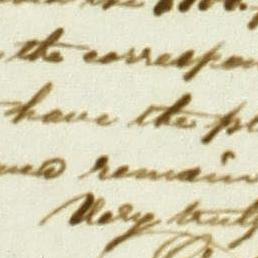 the correspon
have the pl
and remain
Very truly